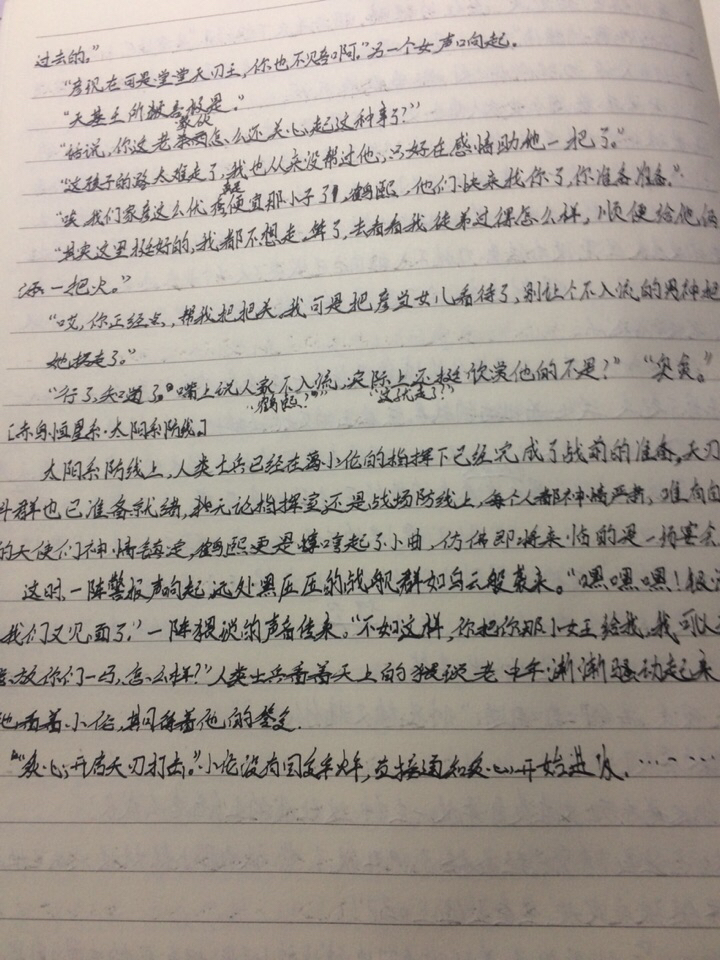 过去的。”
“彦现在可是堂堂天刃王，你也不赔啊。”另一个女声响起。
“天基王所教吾极是。”
“话说，你这老家伙怎么还关心起这种事了？”
“这孩子的路太难走了，我也从来没帮过他，只好在感情助他一把了。”
“唉，我们家彦这么优秀真是便宜那小子了，鹤熙，他们快来找你了，你准备准备。”
“其实这里挺好的，我都不想走，算了，去看看我徒弟过得怎么样，顺便给他俩
添一把火。”
“哎，你正经点，帮我把把关，我可是把彦当女儿看待了，别让个不入流的男神把
她拐走了。”
“行了，知道了。嘴上说人家不入流，实际上还挺欣赏他的不是？” “奕奕。”
“鹤熙？” “这就走了？”
[赤乌恒星系·太阳系防线]
太阳系防线上，人类士兵已经在葛小伦的指挥下已经完成了战前的准备，天刃
群也已准备就绪，无论指挥室还是战场防线上，每个人都神情严肃，唯有
的天使们神情镇定，鹤熙更是哼起了小曲，仿佛即将来临的是一场宴会
这时一阵警报声响起，远处黑压压的战舰群如乌云般袭来。“嘿嘿嘿！
我们又见面了。”一阵猥琐的声音传来。“不如这样，你把你那小女王给我，我可以
放你们一马，怎么样？”人类士兵看着天上的猥琐老中年渐渐骚动起来
他看着小伦，期待着他的答复。
“炙心，开启天刃打击。”小伦没有回复华烨，直接通知炙心开始进攻。……